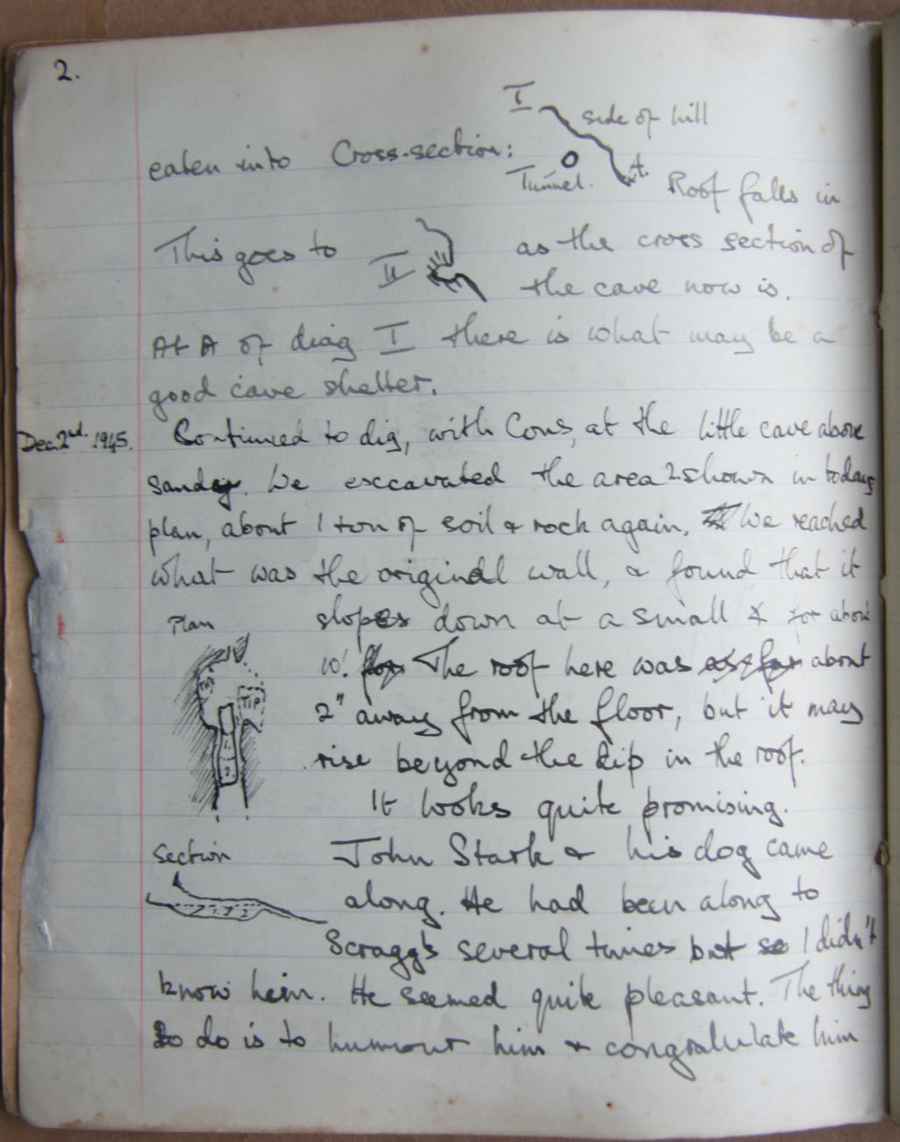 2.
I
side of hill
eaten into Cross-section:
Tunnel. A. Roof falls in
This goes to II as the cross section of
the cave now is.
At A of diag I there is what may be a
good cave shelter.
Dec. 2nd. 1945. Continued to dig, with Cons, at the little cave above
sandy. We excavated the area 2 shown in todays
plan, about 1 ton of soil & rock again. We reached
what was the original wall, & found that it
Plan slopes down at a small ∡ for about
10'. The roof here was about
TIP
2" away from the floor, but it may
rise beyond the dip in the roof.
1
2
It looks quite promising.
Section John Stark & his dog came
along. He had been along to
Scragg's several times but so I didn't
know him. He seemed quite pleasant. The thing
to do is to humour him & congratulate him